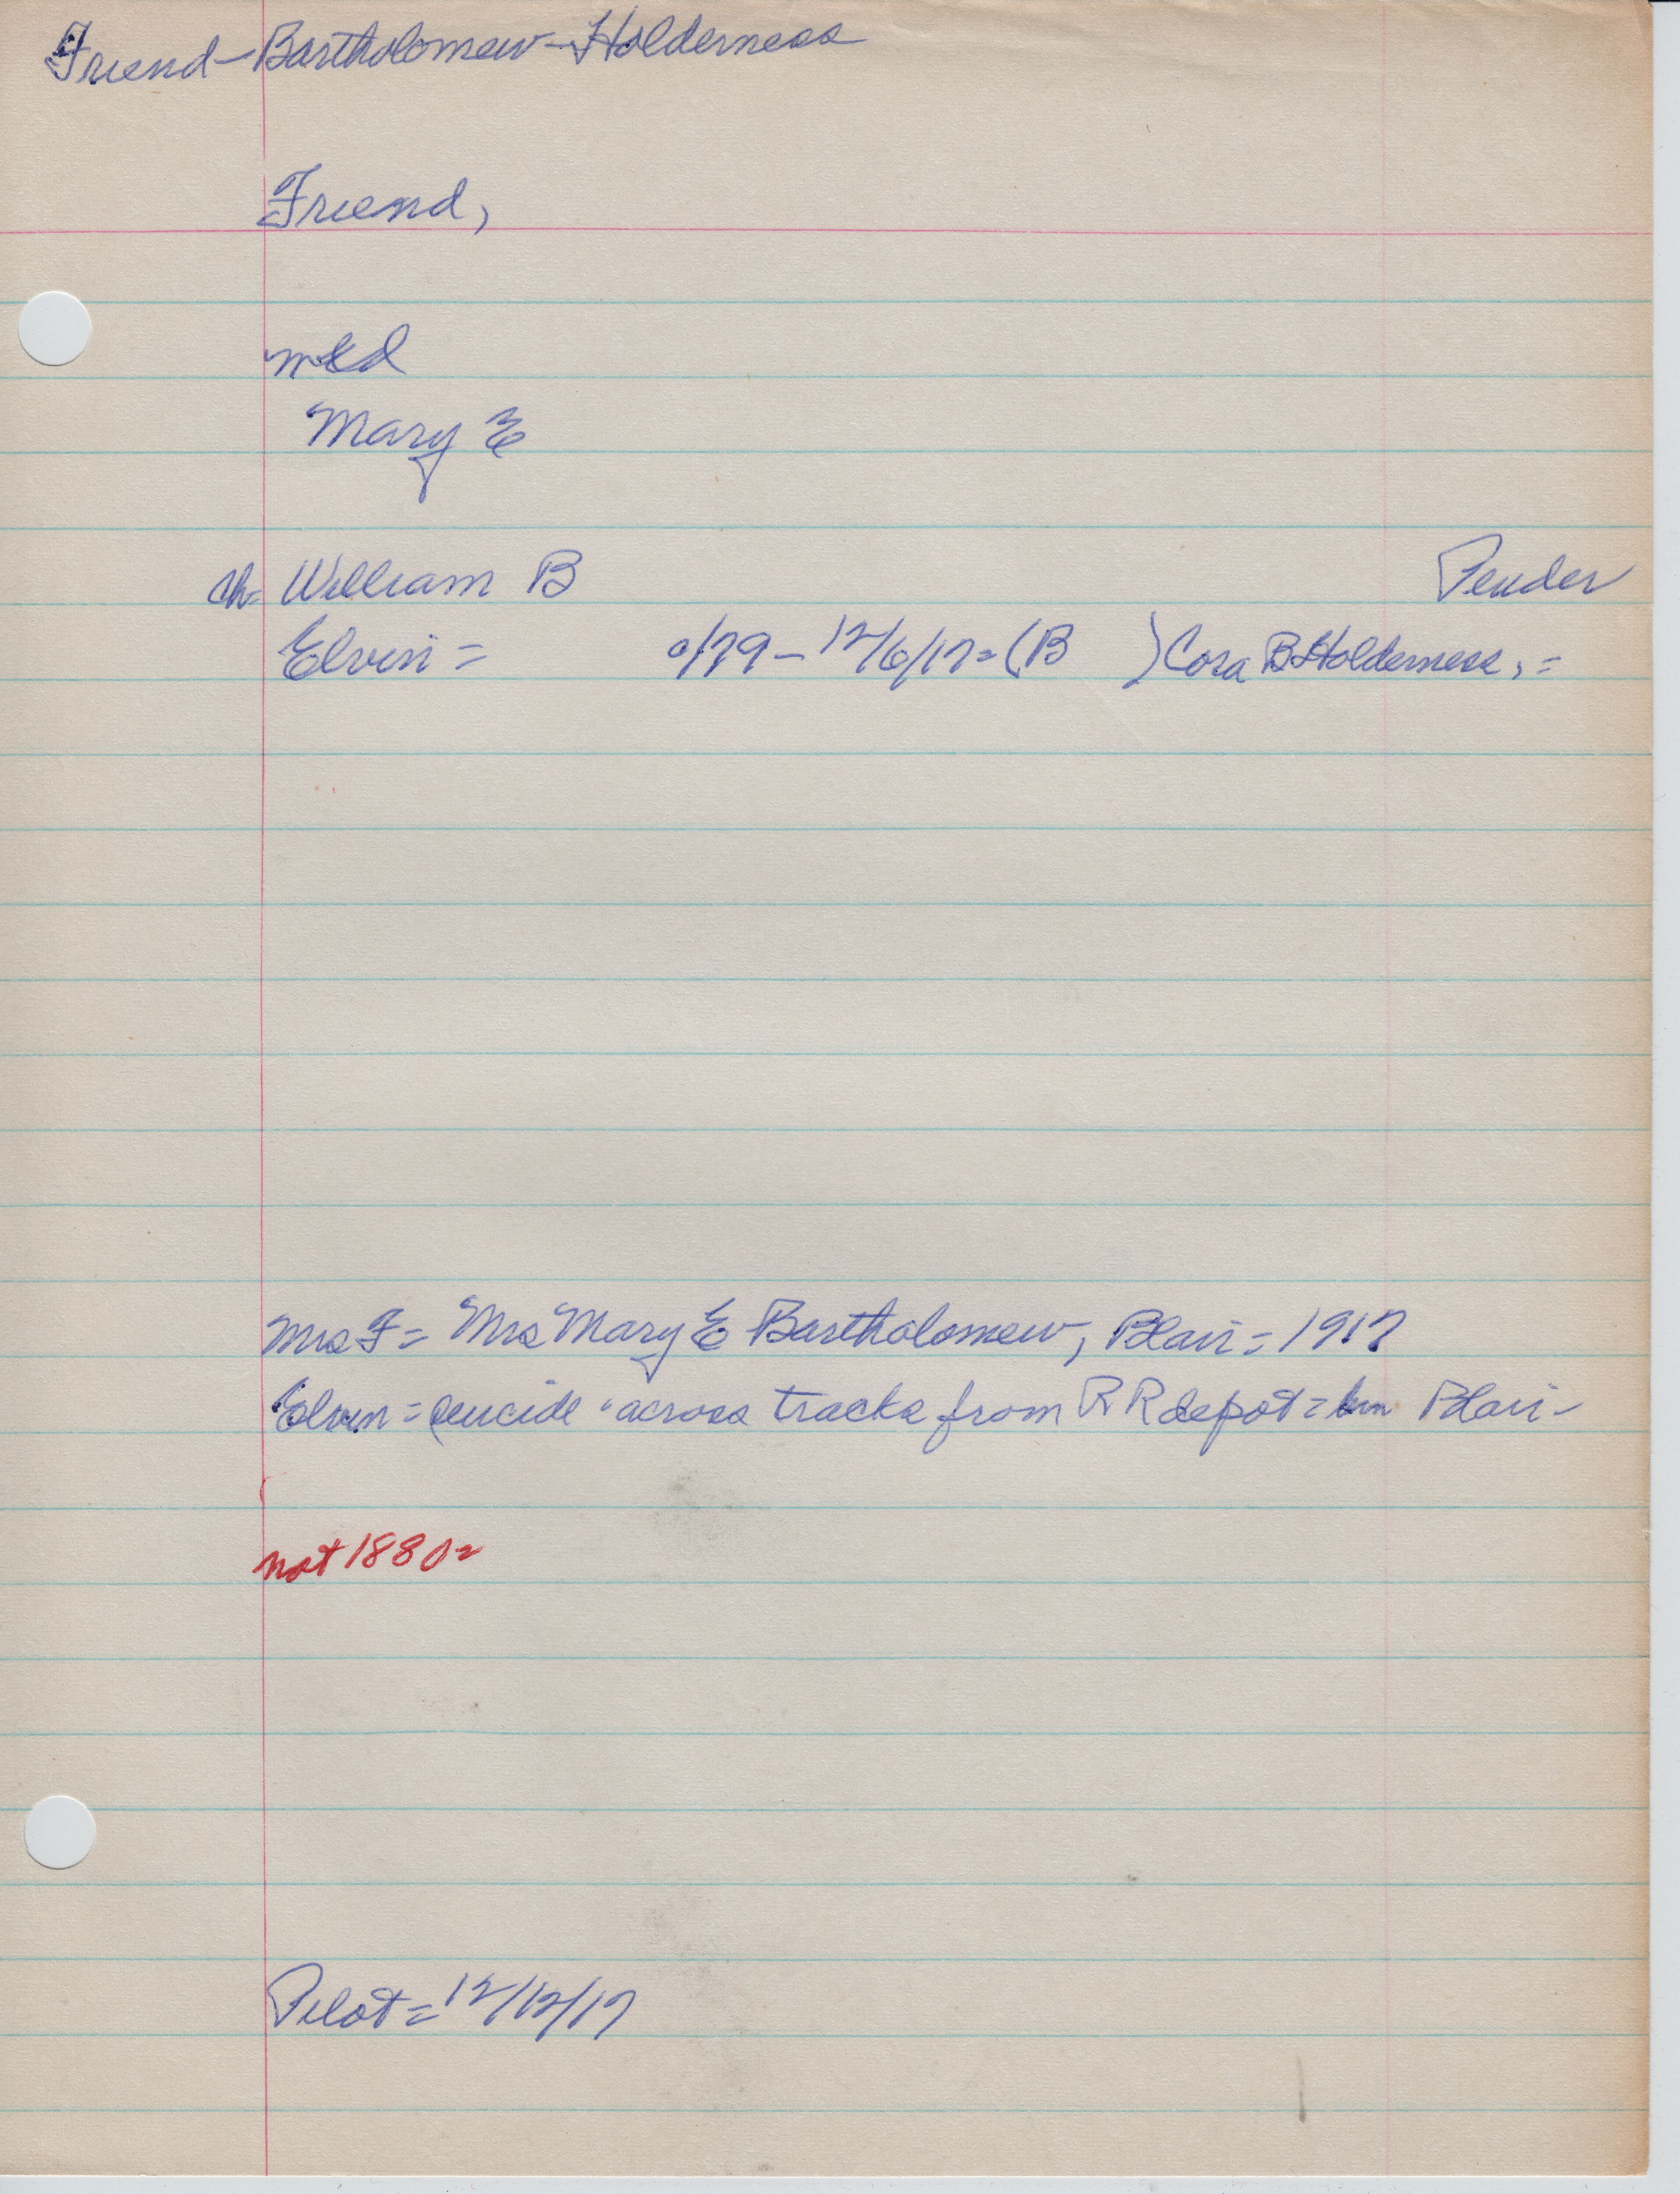 Friend-Bartholomew-Holderness
Friend,
md
Mary E
ch= William B Pender
Elvin = /79 - 12/6/17 = (B ) Cora B Holderness, =
Mrs F = Mrs Mary E Bartholomew, Blair = 1917
Elvin = suicide across tracks from RR depot = Blair -
not 1880=
Pilot = 12/12/17